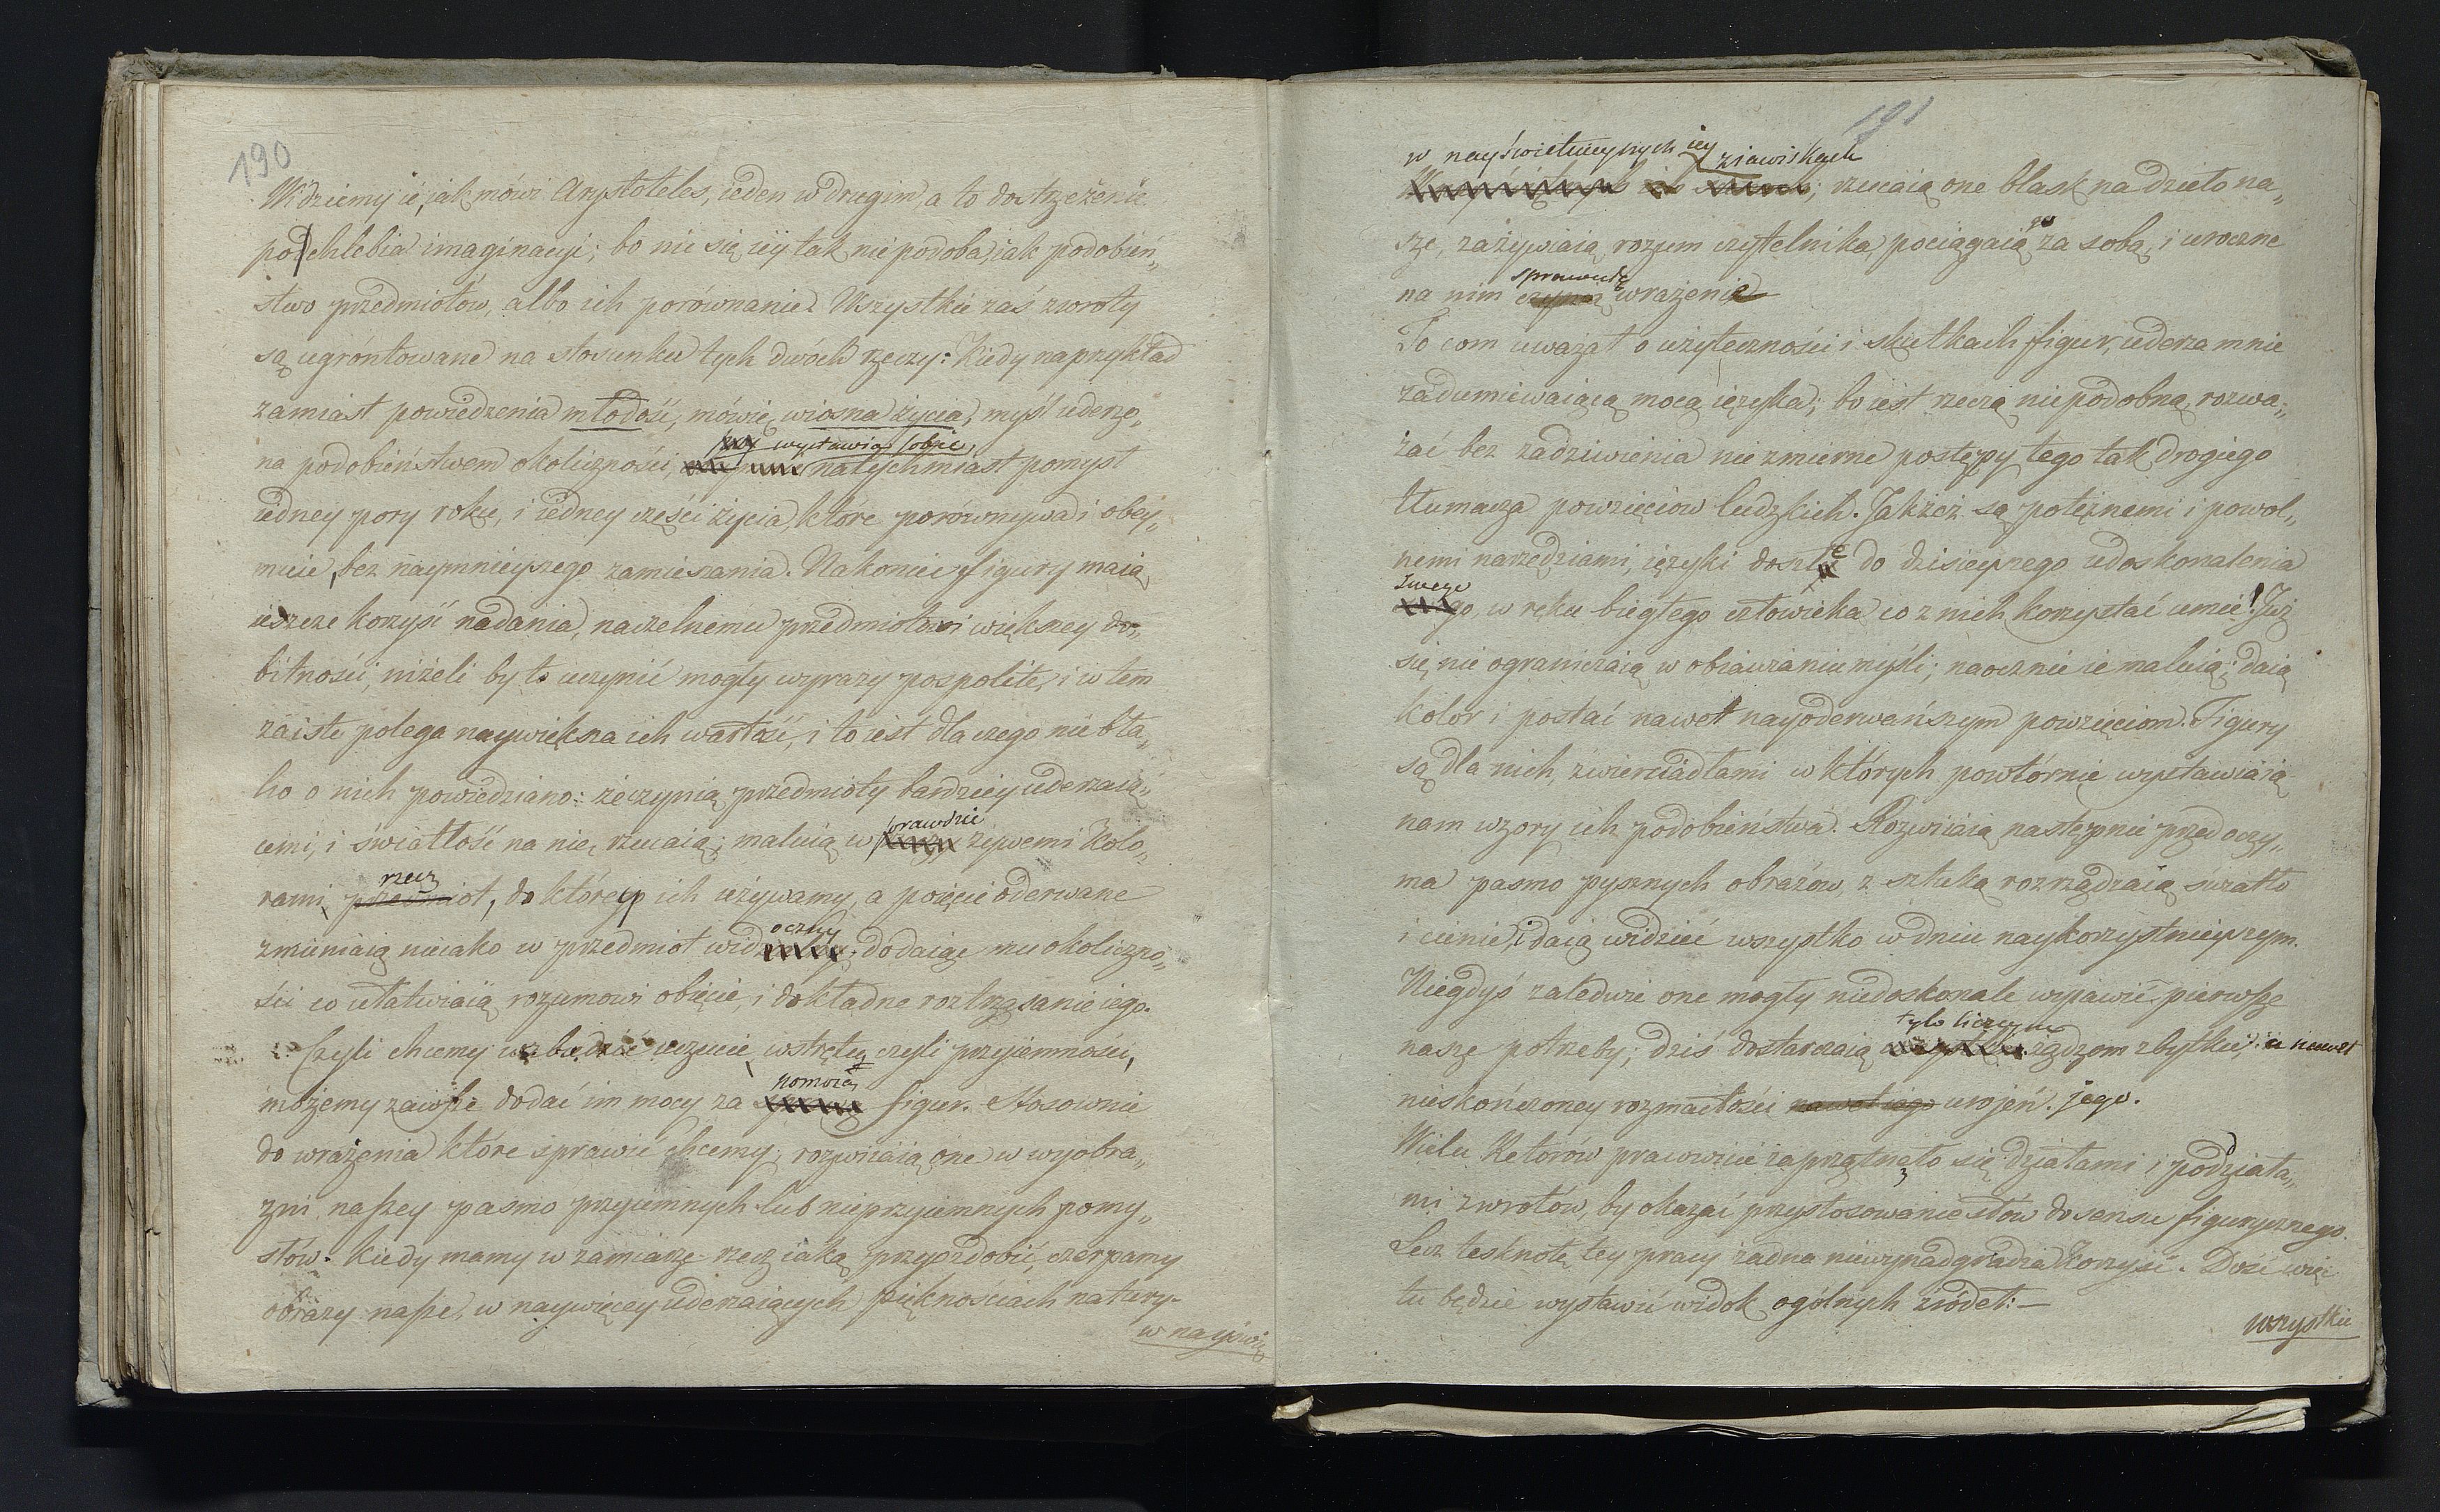 190
Widziemy ie, jak mówi Arystoteles, ieden w drugim, a to dostrzeżenie
podchlebia imaginacyi; bo nic się iey tak nie podoba, iak podobień„
stwo przedmiotów, albo ich porównanie. Wszystkie zaś zwroty
są ugróntowane na stosunku tych dwóch rzeczy: Kiedy naprzykład
zamiast powiedzenia młodość, mówię wiosna życia, myśl uderzo„
wystawia sobie
na podobieństwem okoliczności, natychmiast pomysł
iedney pory roku, i iedney części życia, które porównywa i obey„
muie, bez naymnieyszego zamieszania. Nakoniec figury maią
ieszcze korzyść nadania, naczelnemu przedmiotowi większey do„
bitności, niżeli by to uczynić mogły wyrazy pospolite, i w tem
zaiste polega naywiększa ich wartość, i to iest dla czego nie bła„
ho o nich powiedziano: że czynią przedmioty bardziey uderzaią„
prawdzie
cemi, i światłość na nie rzucaią; maluią w żywemi kolo„
rzecz
rami przedmiot, do którey ich używamy, a poięcie oderwane
oczny
zmieniaią nieiako w przedmiot wid dodaiąc mu okoliczno„
ści co ułatwiaią rozumowi obięcie, i dokładne roztrząsanie iego.
Czyli chcemy wzbudzić uczucie wstrętu czyli przyiemności,
pomocą
możemy zawsze dodać im mocy za figur. Stosownie
do wrażenia które sprawić chcemy, rozwiiaią one w wyobra„
źni naszey pasmo przyiemnych lub nieprzyiemnych pomy„
słów. Kiedy mamy w zamiarze rzecz iaką przyozdobić, czerpamy
obrazy nasze, w naywięcey uderzaiących pięknościach natury
w nayświe
191
w nayświetnieyszych iey ziawiskach
; rzucaią one blask na dzieło na„
go
sze, zażywiaią rozum czytelnika, pociągaią za sobą, i uroczne
sprawuią
na nim czynią wrażenie
To com uważał o użyteczności i skutkach figur, uderza mnie
zadumiewaiącą mocą ięzyka; bo iest rzeczą niepodobną, rozwa„
żać bez zadziwienia niezmierne postępy tego tak drogiego
tłumacza powzięciow ludzkich. Jakżeż są potężnemi i powol„
nemi narzędziami, ięzyki doszłe do dzisieyszego udoskonalenia
swego
w ręku biegłego człowieka co z nich korzystać umie! Już
się nie ograniczaią w obiawianiu myśli; naocznie ie maluią; daią
kolor i postać nawet nayoderwańszym powzięciom. Figury
są dla nich, zwierciadłami w których powtórnie wystawiaią
nam wzory ich podobieństwa. Rozwiiaią następnie przed oczy„
ma pasmo pysznych obrazów, z sztuką rozrządzaią światło
i cienie, i daią widzieć wszystko w dniu naykorzystnieyszym.
Niegdyś zaledwie one mogły niedoskonale wyiawić pierwsze
tylo licznym
nasze potrzeby; dziś dostarczaią żądzom zbytku, i nawet
nieskończoney rozmaitości nawet iego urojeń. jego.
Wielu Retorów pracowicie zaprzątnęło się działami i podziała„
mi zwrotów, by okazać przystosowanie słów do sensu figurycznego.
Lecz tesknotę tey pracy żadna niewynadgradza korzyść. Dość więc
tu będzie wystawić widok ogólnych źródeł: —
wszystkie